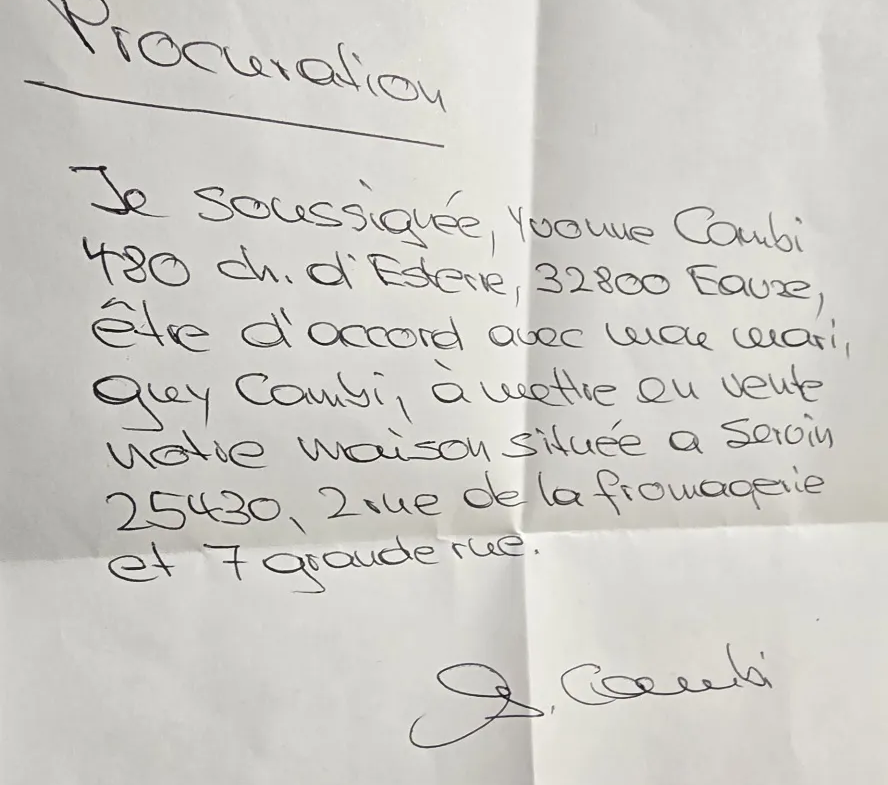 Procuration
Je soussignée, Yvonne Combi
480 ch. d'Esterre, 32800 Eauze,
être d'accord avec mon mari,
Guy Combi, à mettre en vente
notre maison située a Servin
25430, 2 rue de la fromagerie
et 7 grande rue.
Y. Combi